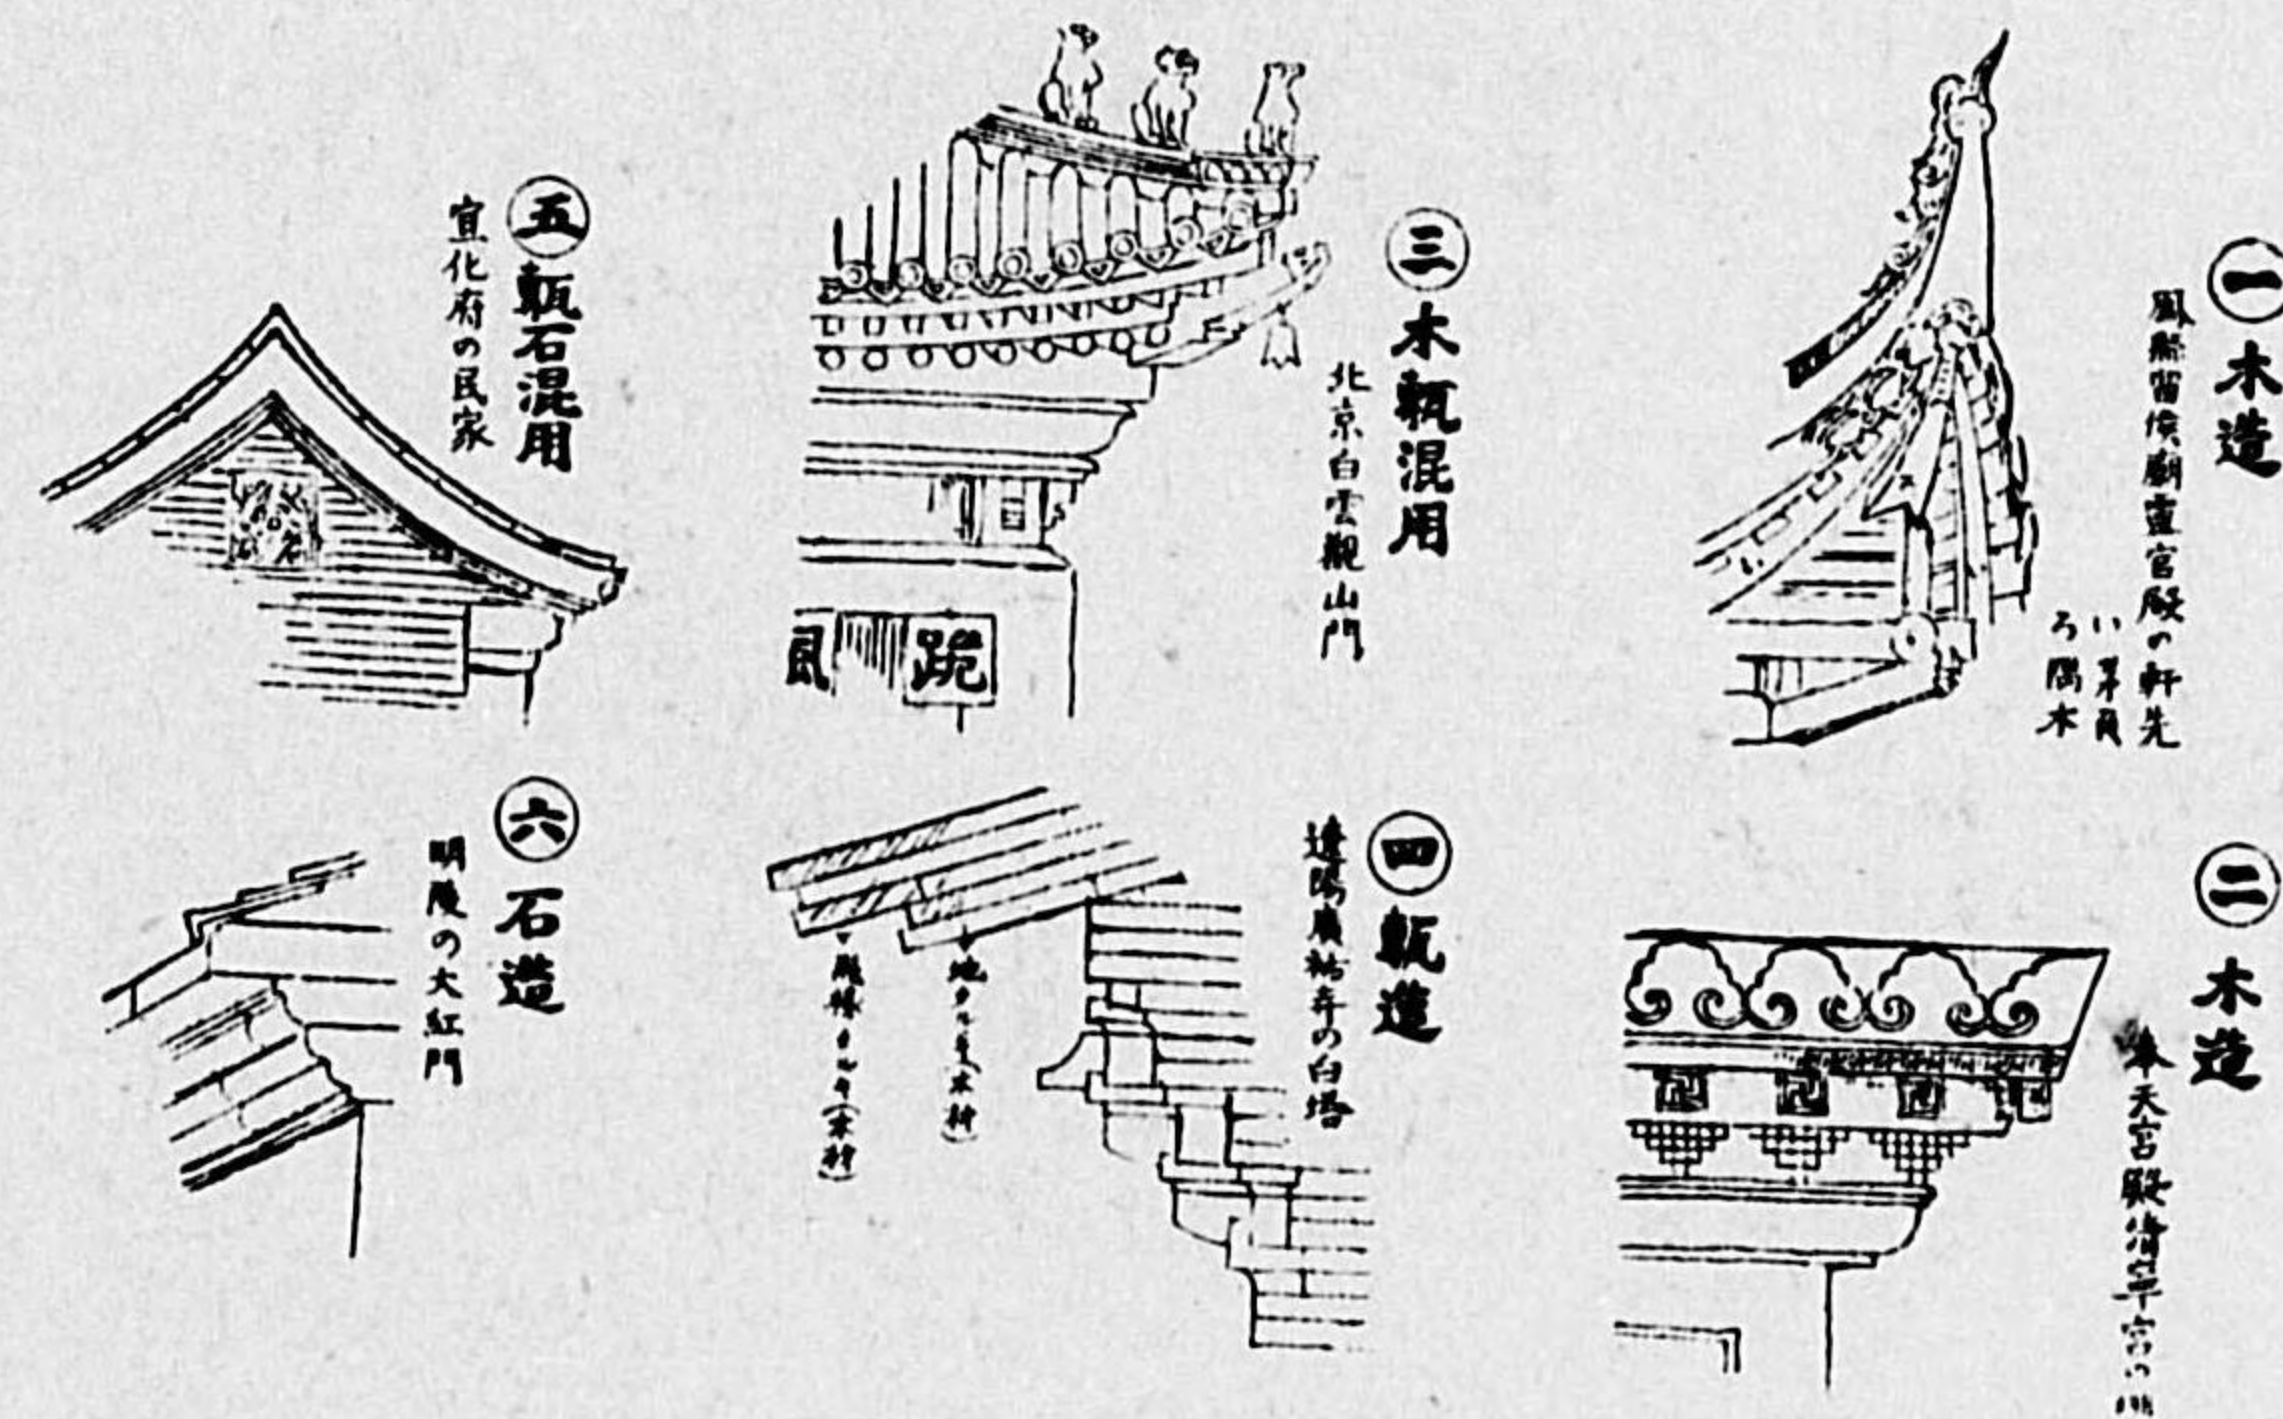 一 木造
鳳縣留侯廟靈官殿の軒先
い 茅負
ろ 隅木
二 木造
奉天宮殿清寧宮の
三 木甎混用
北京白雲觀山門
跪
風
四 甎造
遼陽廣祐寺の白塔
地タルキ(木材)
飛檐タルキ(木材)
五 甎石混用
宣化府の民家
六 石造
明陵の大紅門